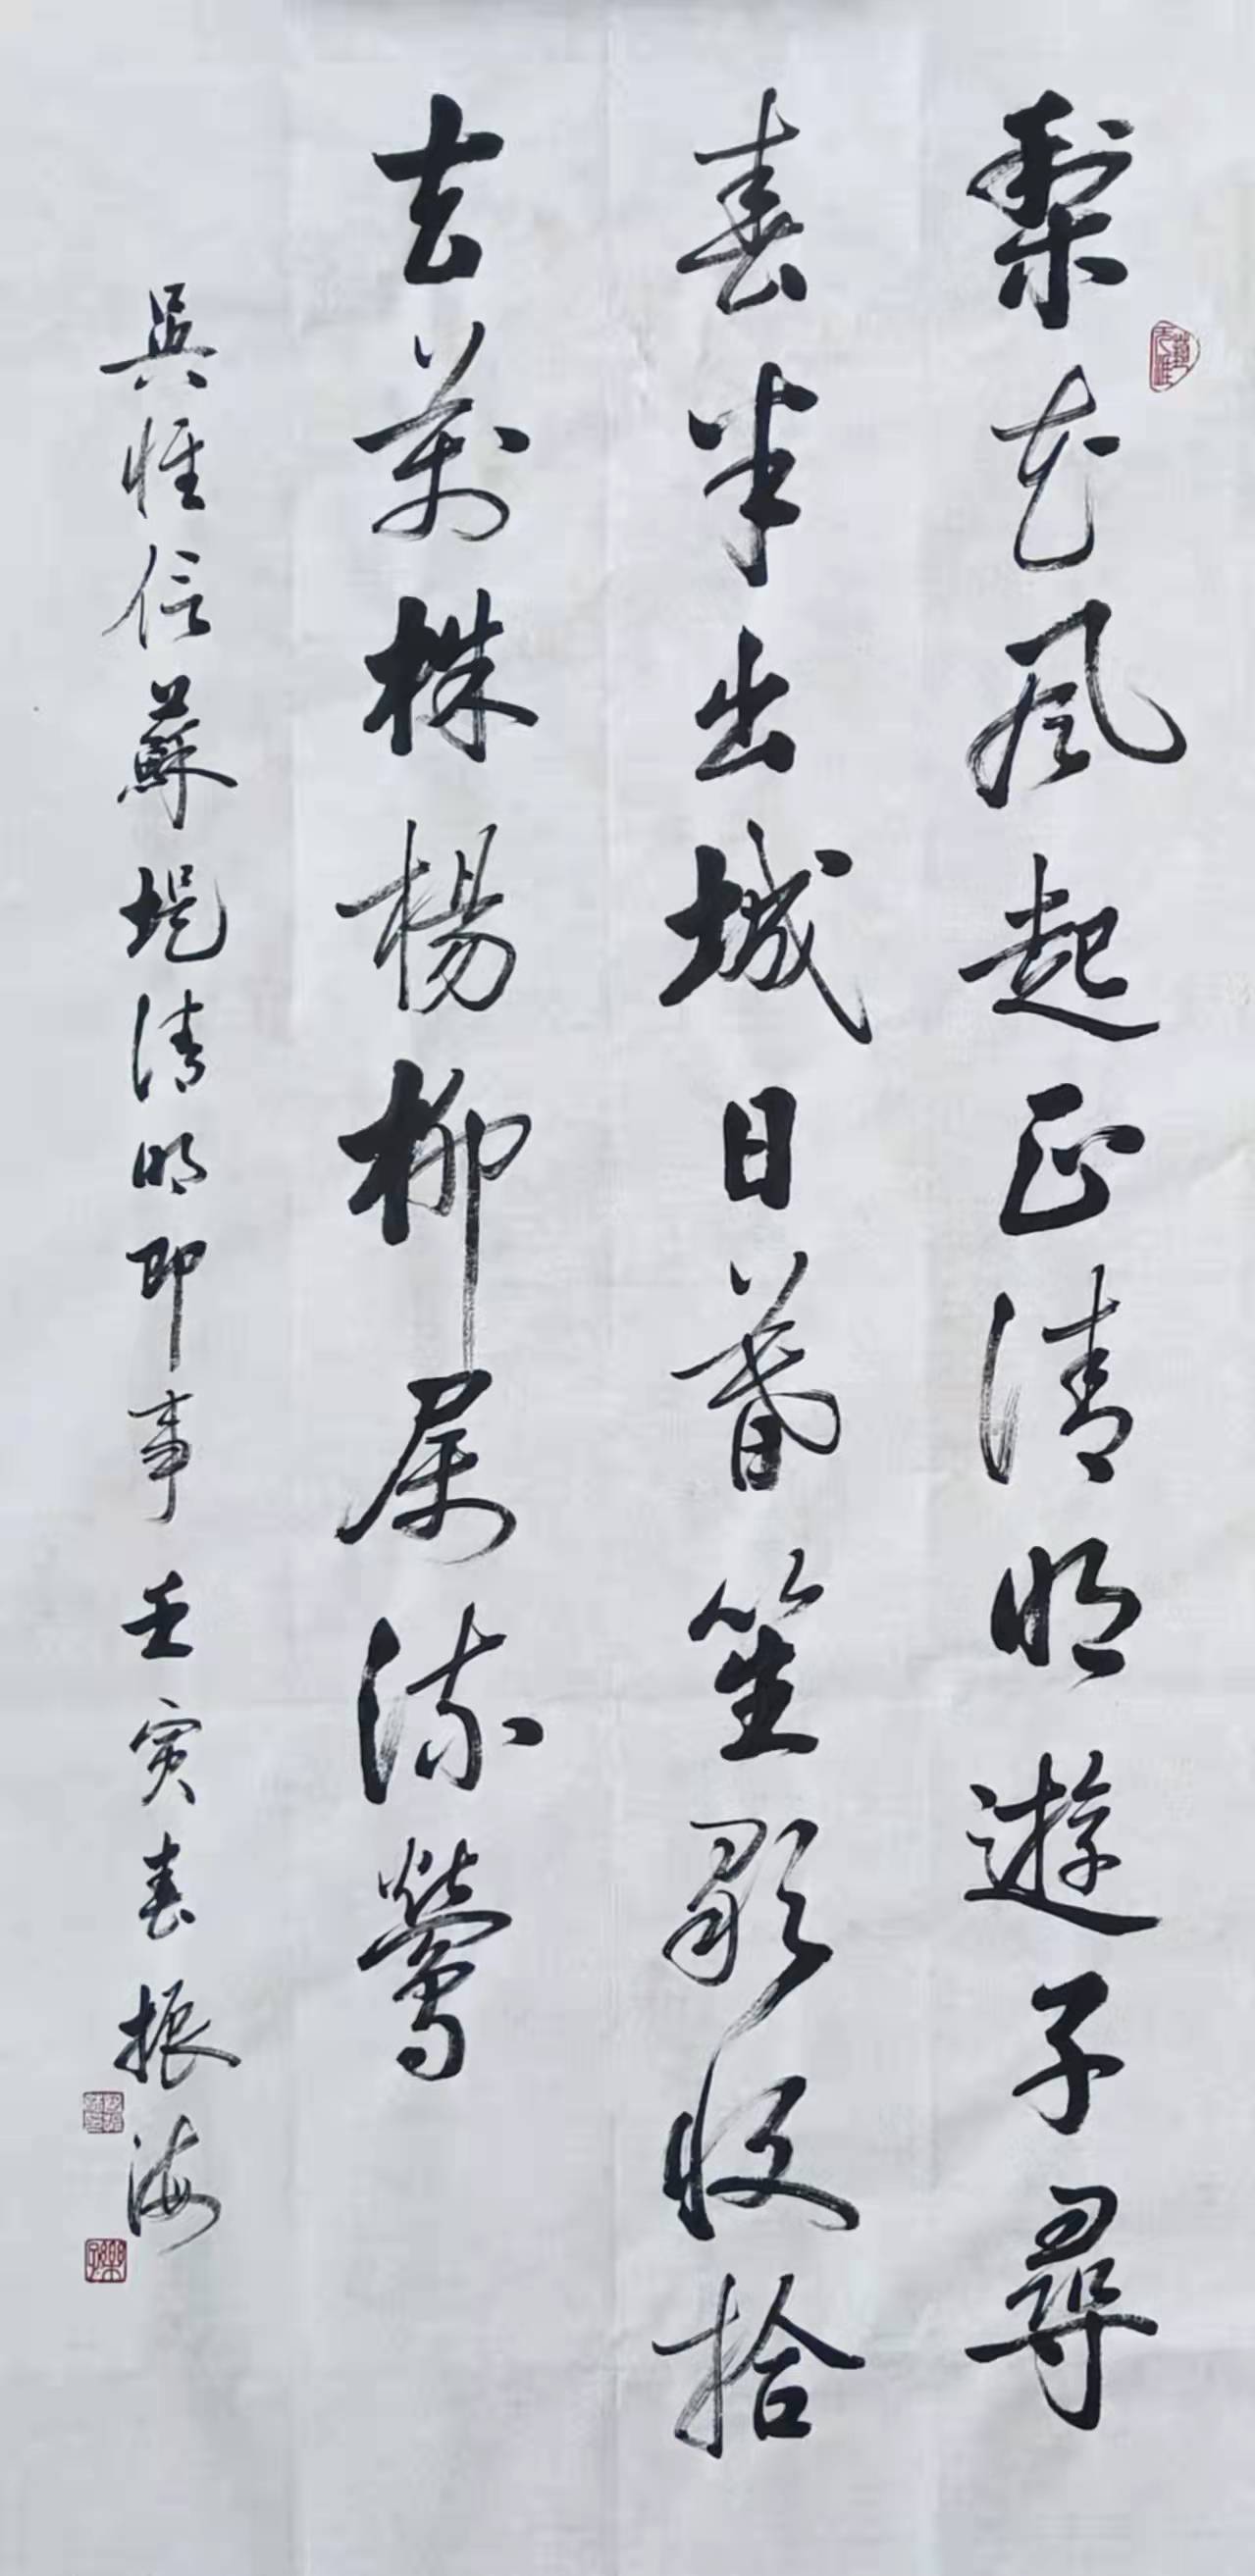 梨花風起正清明遊子尋
春半出城日暮笙歌收拾
去萬株楊柳属流鶯
吳惟信蘇堤清明即事壬寅春振海